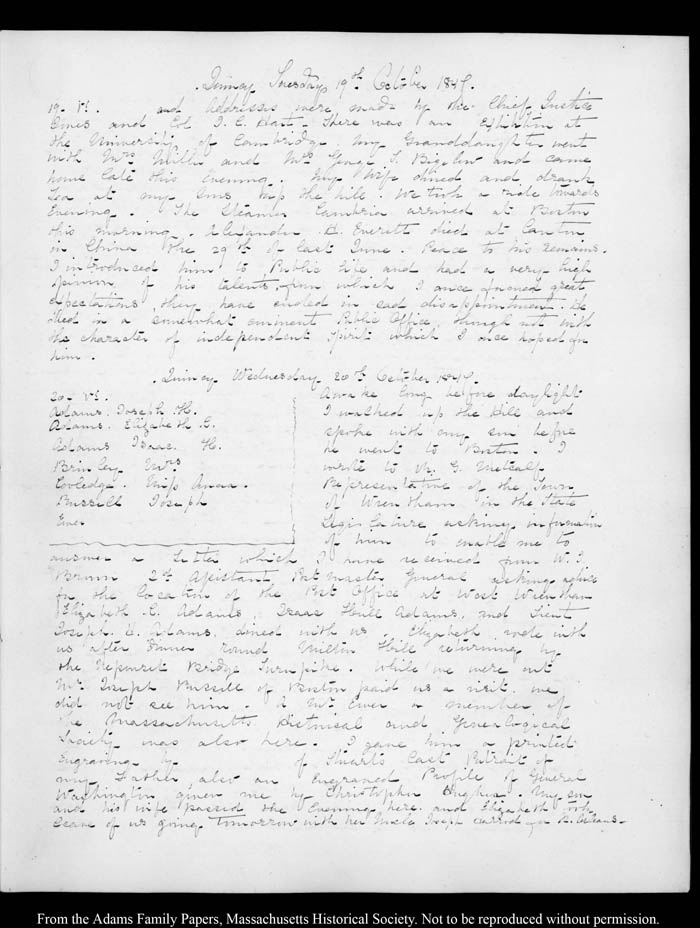 Quincy Tuesday 19th October 1847.
19. VI. and Addresses were made by the Chief Justice
Ames and Col. I. C. Hart. There was an Exhibition at
the University of Cambridge my Granddaughter went
with Mrs Miller and Mrs George T. Bigelow and came
home late this Evening. My Wife dined and drank
Tea at my Sons up the hill. We took a ride towards
Evening. The Steamer Cambria arrived at Boston
this morning. Alexander H. Everett died at Canton
in China the 29th of last June. Peace to his remains.
I introduced him to Public life and had a very high
opinion of his talents, from which I once formed great
expectations, they have ended in sad disappointment. He
died in a somewhat eminent Public Office, though not with
the character of independent spirit which I once hoped for
him.
Quincy Wednesday 20th October 1847.
20. VI.
Adams. Joseph H.
Adams. Elizabeth C.
Adams Isaac. H.
Brinley Mrs
Coolidge. Miss Anna.
Russell Joseph
Ewer
Awake long before daylight
I walked up the Hill and
spoke with my son before
he went to Boston. I
wrote to M. G. Metcalf
Representative of the Town
of Wrentham in the State
Legislature asking information
of him to enable me to
answer a Letter which I have received from W. J.
Brown 2d Assistant Postmaster General asking advice
for the location of the Post Office at West Wrentham
Elizabeth C. Adams, Isaac Hull Adams, and Lieut
Joseph. H. Adams, dined with us. Elizabeth rode with
us after dinner round Milton Hill returning by
the Neponset Bridge Turnpike. While we were out
Mr. Joseph Russell of Boston paid us a visit. we
did not see him. A Mr. Ewer a member of
the Massachusetts Historical and Genealogical
Society was also here. I gave him a printed
Engraving by of Stuarts last Portrait of
my Father also an Engraved Profile of General
Washington given me by Christopher Hughes. My son
and his wife passed the Evening here. and Elizabeth took
leave of us going tomorrow with her Uncle Joseph
From the Adams Family Papers, Massachusetts Historical Society. Not to be reproduced without permission.